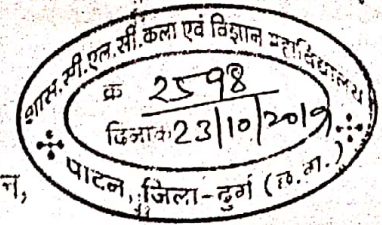 शास. सी.एल.सी. कला एवं विज्ञान महाविद्यालय
क्र 2598
दिनांक 23/10/2019
पाटन, जिला-दुर्ग (छ.ग.)
न,